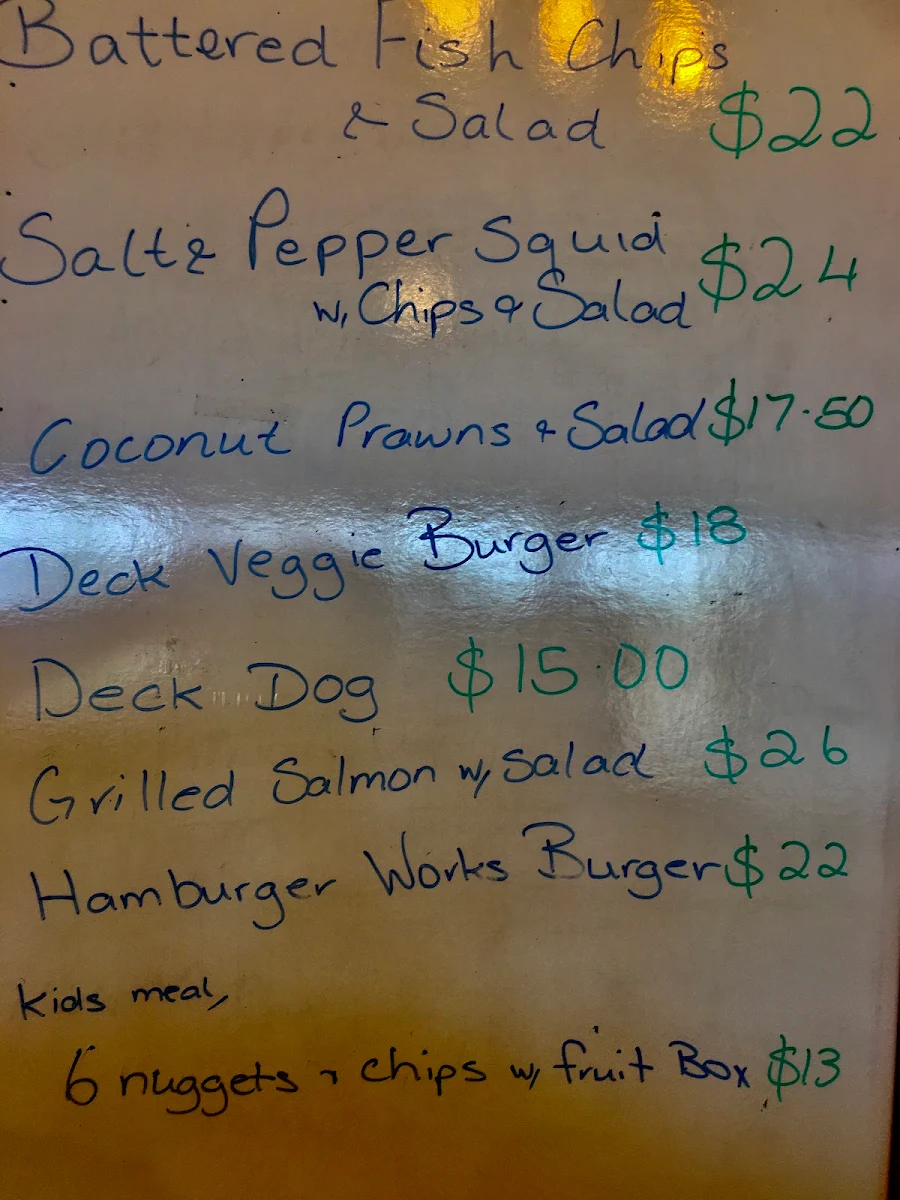 Battered Fish Chips
& Salad $22
Salt & Pepper Squid
w, Chips & Salad $24
Coconut Prawns + Salad $17.50
Deck Veggie Burger $18
Deck Dog $15.00
Grilled Salmon w, Salad $26
Hamburger Works Burger $22
Kids meal,
6 nuggets + chips w, fruit Box $13